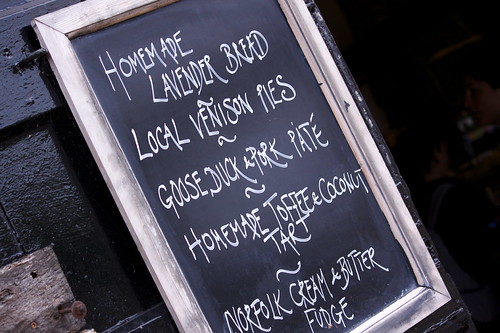 HOMEMADE
LAVENDER BREAD
~
LOCAL VENISON PIES
~
GOOSE, DUCK & PORK PÂTÉ
~
HOMEMADE TOFFEE & COCONUT
TART
~
NORFOLK CREAM & BUTTER
FUDGE